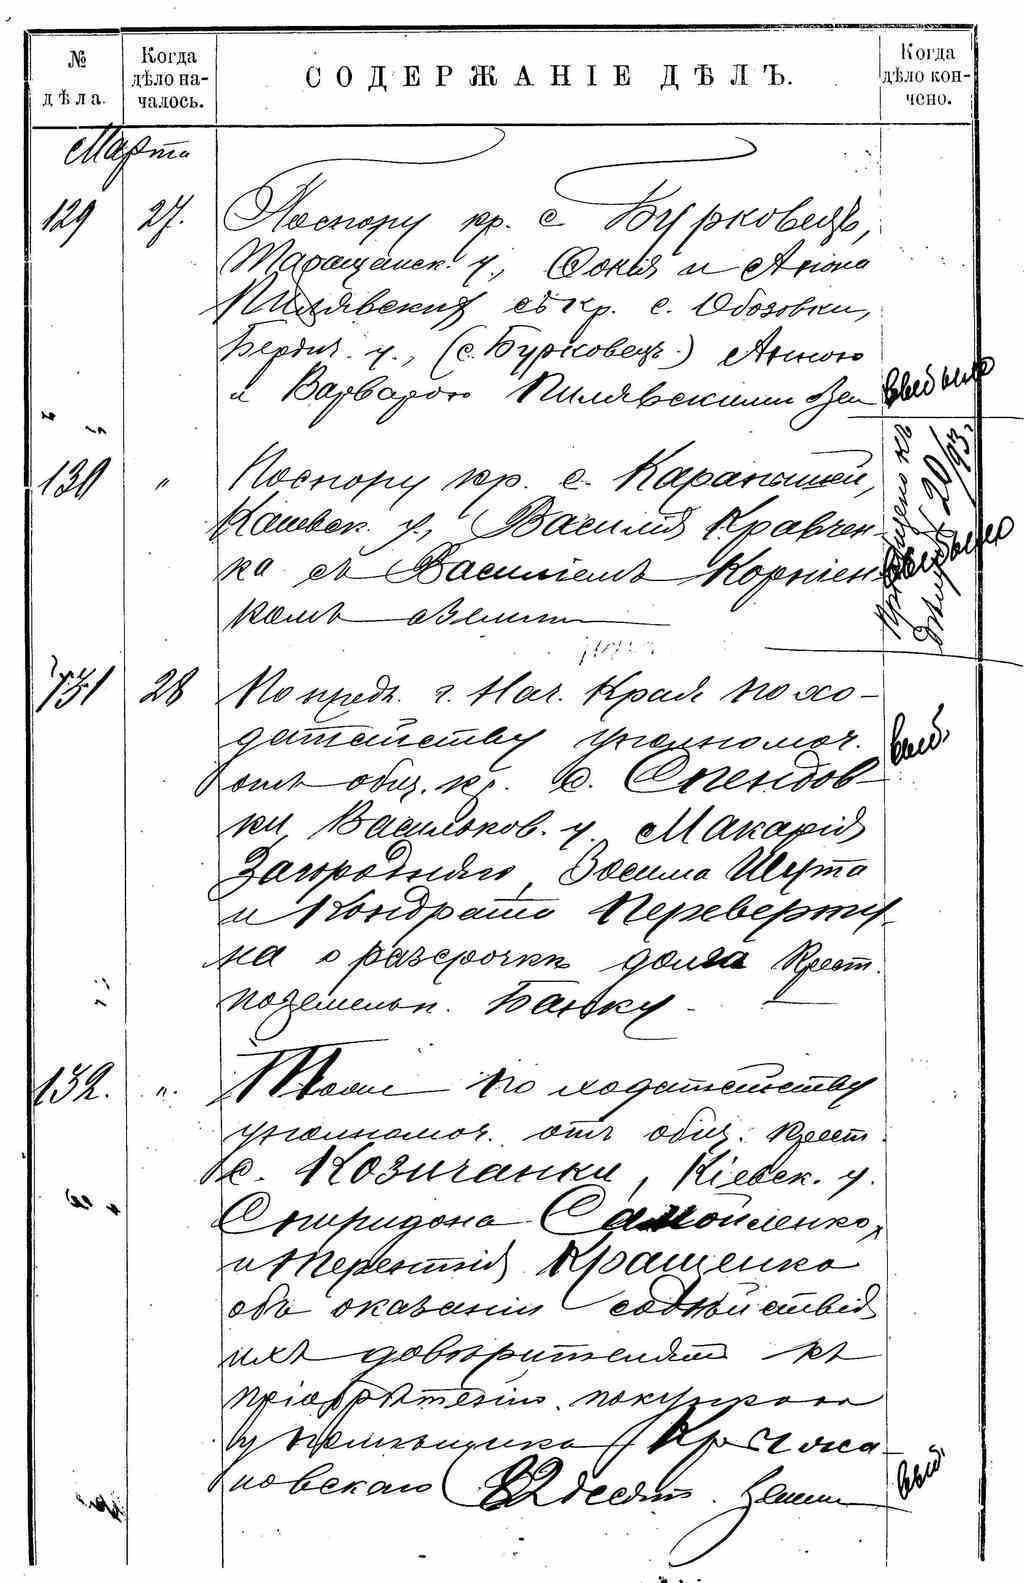 № дѣла.
Когда дѣло началось.
СОДЕРЖАНІЕ ДѢЛЪ.
Когда дѣло кончено.
Марта
129 27. По спору кр. с. Бурковецъ,
Таращанск. у., Софія и Антона
Пилявскихъ съ кр. с. Обозовки,
Бердич. у., (с. Бурковецъ) Анною
и Варварою Пилявскими о зем
выбыло
130 " По спору кр. с. Карапышей,
Каневск. у., Василія Кравчен-
ка съ Василіемъ Корніен-
комъ о земли
выбыло
20/93.
131 28 По предп. г. Нач. Края по хо-
датайству уполномоч.
отъ общ. кр. с. Спендов-
ки, Васильков. у. Макарія
Загородняго, Зосима Шута
и Кондрата Переверту-
на о разсрочкѣ долга Крест.
поземельн. Банку.
выб.
132. " Тоже по ходатайству
уполномоч. отъ общ. крест.
с. Козичанки, Кіевск. у.
Спиридона Самойленко,
и Терентія Кращенко
объ оказаніи содѣйствія
ихъ довѣрителямъ къ
пріобрѣтенію покупкою
у помѣщика Кржижа-
новскаго 82 десят. земли
выб.